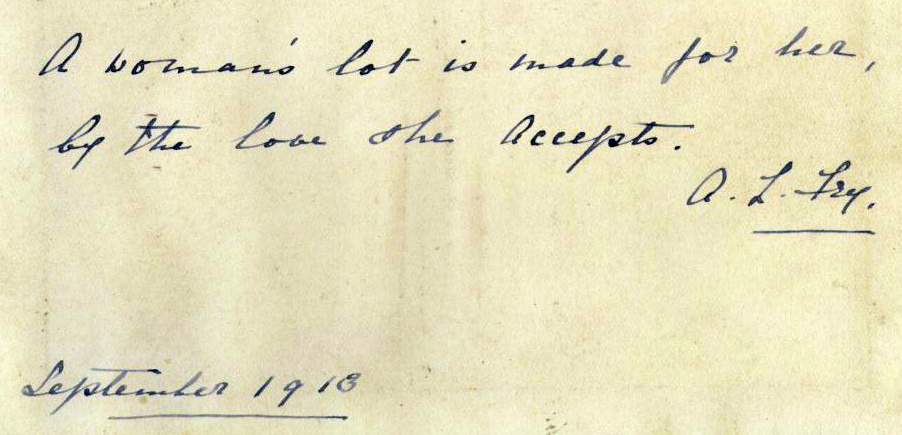 A woman's lot is made for her,
by the love she Accepts.
A. L. Fry.
September 1913